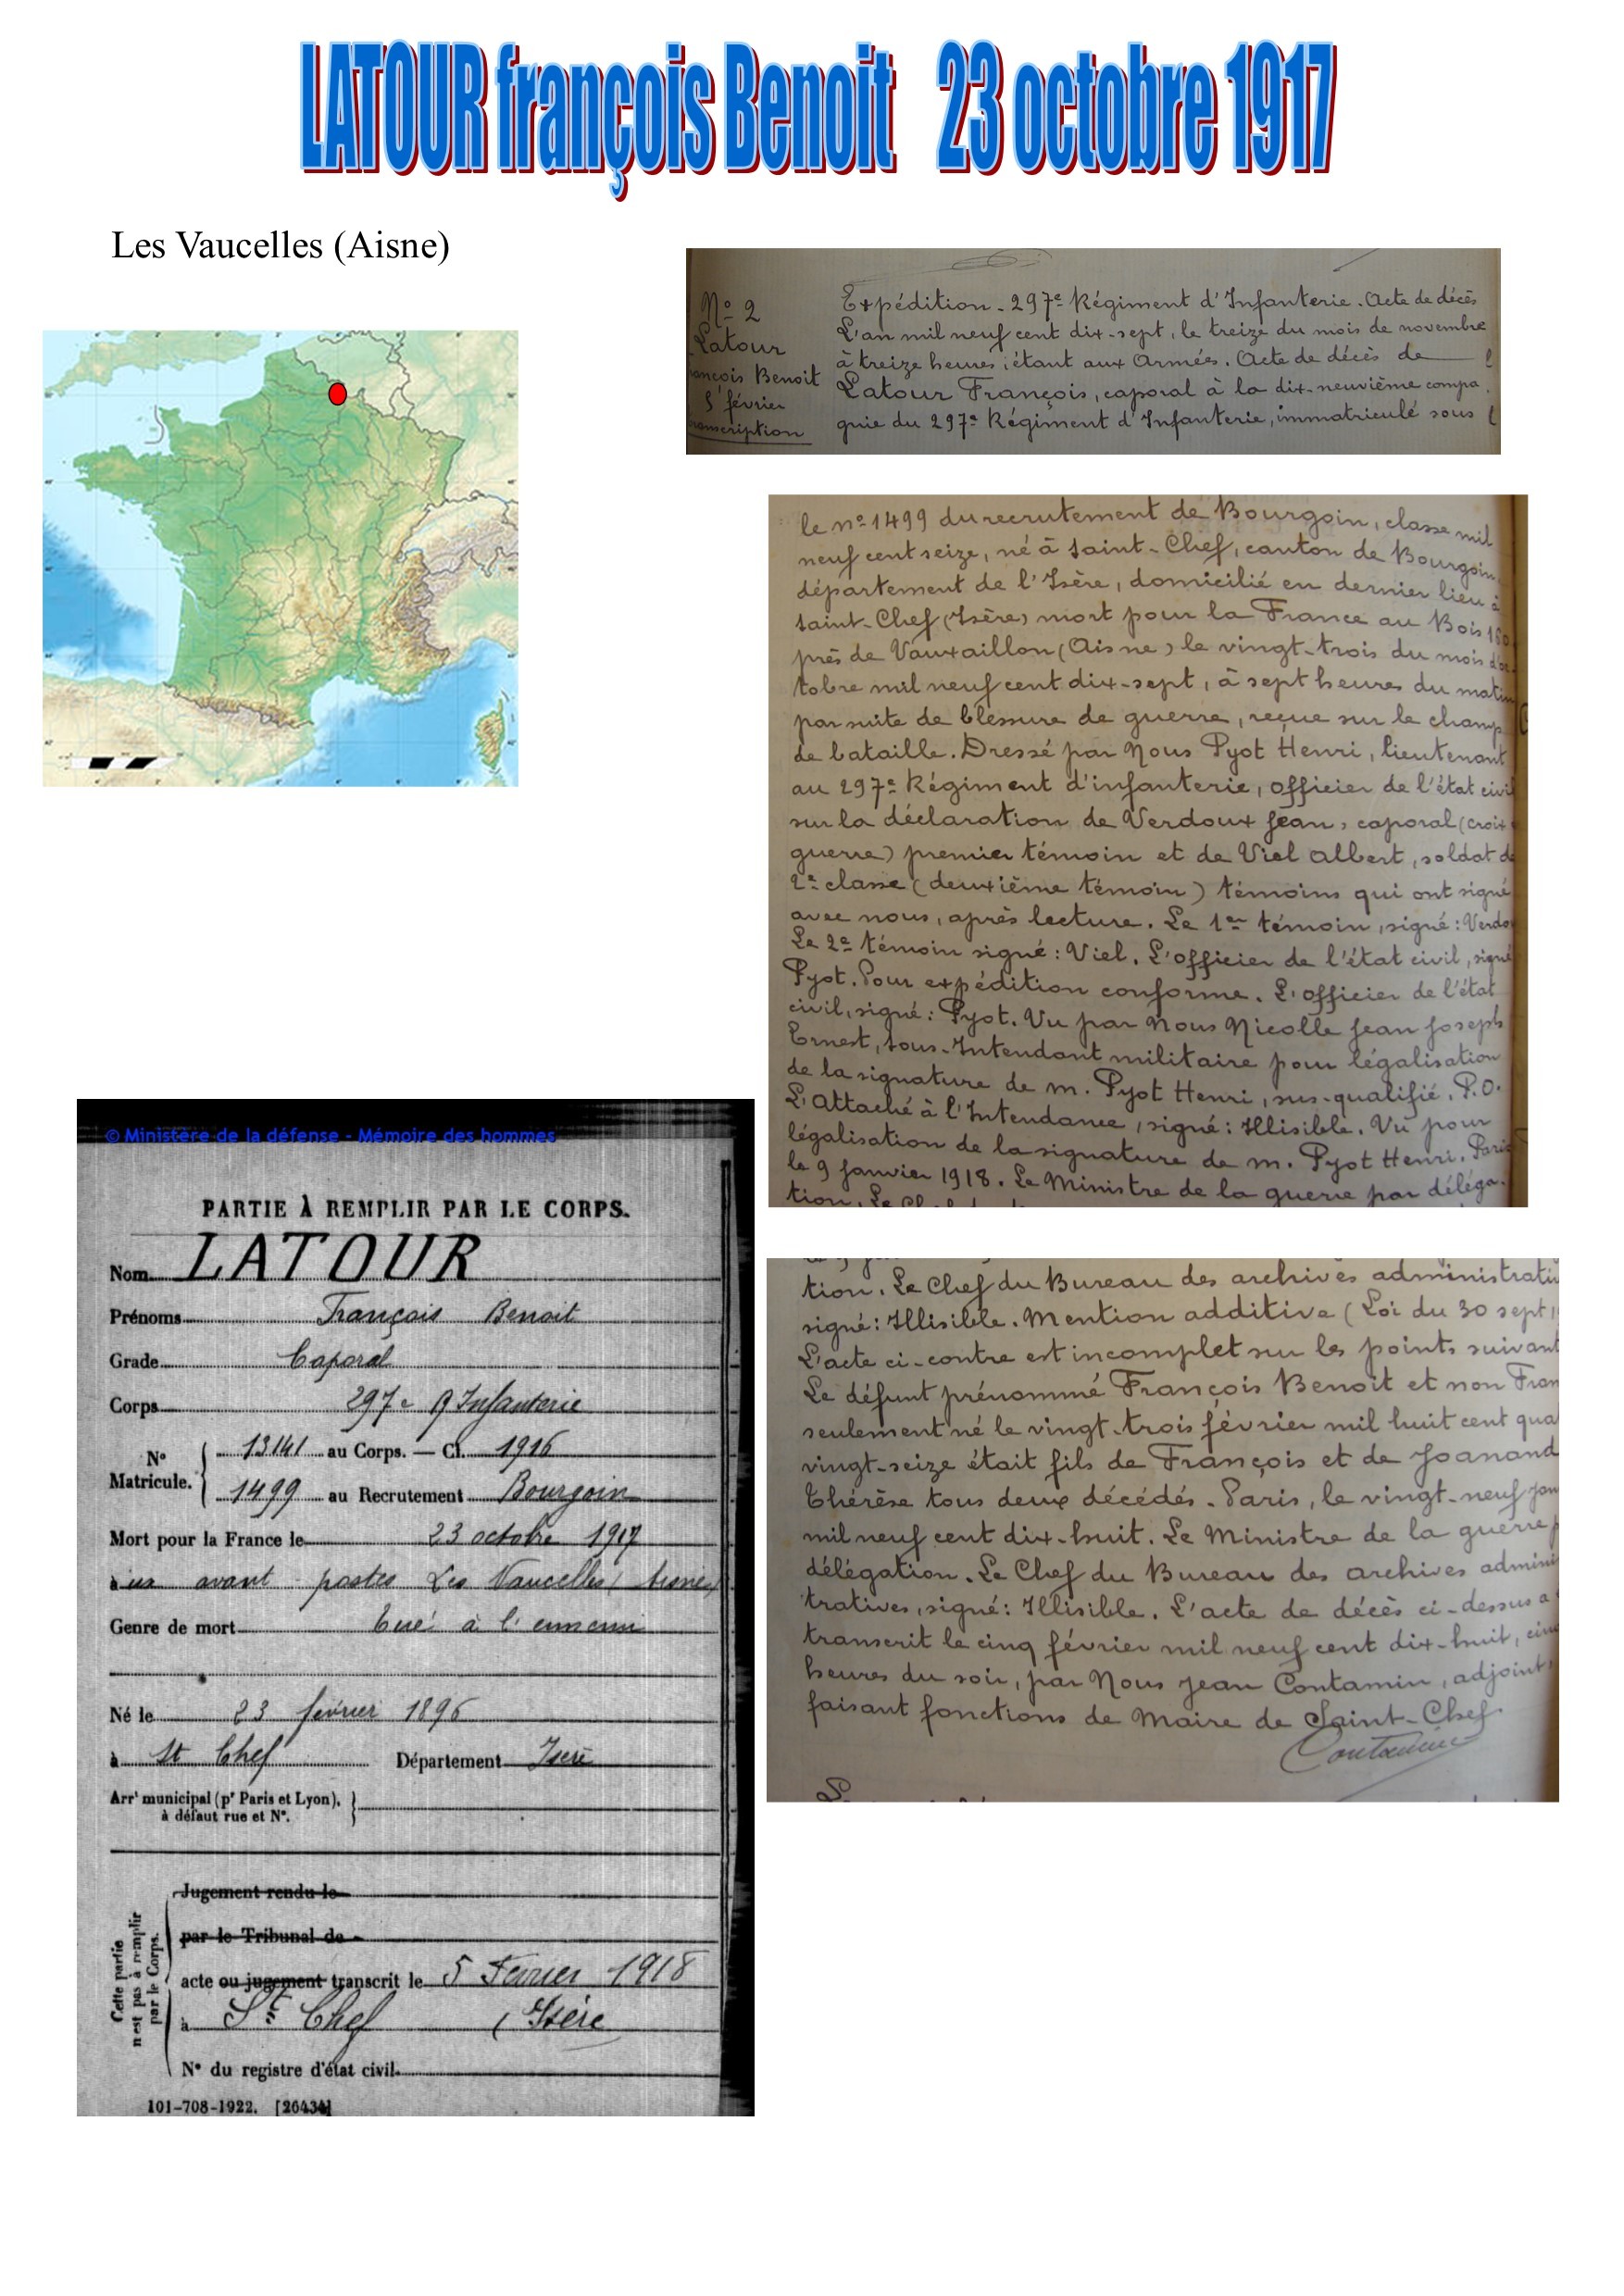 LATOUR françois Benoit 23 octobre 1917
Les Vaucelles (Aisne)
N° 2
Latour
ançois Benoit
5 février
anscription
Expédition - 297e Régiment d'Infanterie. Acte de décès
L'an mil neuf cent dix-sept, le treize du mois de novembre
à treize heures, étant aux Armées. Acte de décès de
Latour François, caporal à la dix-neuvième compa
gnie du 297e Régiment d'Infanterie, immatriculé sous
le n° 1499 du recrutement de Bourgoin, classe mil
neuf cent seize, né à Saint-Chef, canton de Bourgoin
département de l'Isère, domicilié en dernier lieu à
Saint-Chef (Isère) mort pour la France au Bois 160
près de Vauxaillon (Aisne) le vingt-trois du mois d'oc
tobre mil neuf cent dix-sept, à sept heures du matin
par suite de blessure de guerre, reçue sur le champ
de bataille. Dressé par Nous Pyot Henri, lieutenant
au 297e Régiment d'infanterie, officier de l'état civil
sur la déclaration de Verdoux Jean, caporal (croix
guerre) premier témoin et de Viel Albert, soldat de
2e classe (deuxième témoin) témoins qui ont signé
avec nous, après lecture. Le 1er témoin, signé : Verdo
Le 2e témoin signé : Viel. L'officier de l'état civil, signé
Pyot. Pour expédition conforme. L'officier de l'état
civil, signé : Pyot. Vu par Nous Nicolle Jean Joseph
Ernest, Sous-Intendant militaire pour légalisation
de la signature de m. Pyot Henri, sus-qualifié. P.O.
L'Attaché à l'Intendance, signé : Illisible. Vu pour
légalisation de la signature de m. Pyot Henri. Paris
le 9 Janvier 1918. Le Ministre de la guerre par déléga-
tion. Le Chef
tion. Le Chef du Bureau des archives administrati
signé : Illisible. Mention additive (Loi du 30 sept
L'acte ci-contre est incomplet sur les points suivant
Le défunt prénommé François Benoit et non Fran
seulement né le vingt-trois février mil huit cent qua
vingt-seize était fils de François et de Joanand
Thérèse tous deux décédés. Paris, le vingt-neuf jan
mil neuf cent dix-huit. Le Ministre de la guerre p
délégation. Le Chef du Bureau des archives adminis
tratives, signé : Illisible. L'acte de décès ci-dessus a
transcrit le cinq février mil neuf cent dix-huit, cinq
heures du soir, par Nous Jean Contamin, adjoint,
faisant fonctions de Maire de Saint-Chef.
Contamin
© Ministère de la défense - Mémoire des hommes
PARTIE À REMPLIR PAR LE CORPS.
Nom LATOUR
Prénoms François Benoit
Grade Caporal
Corps 297e R Infanterie
N° Matricule. 13141 au Corps. — Cl. 1916
1499 au Recrutement Bourgoin
Mort pour la France le 23 octobre 1917
à aux avant postes Les Vaucelles (Aisne)
Genre de mort tué à l'ennemi
Né le 23 février 1896
à St Chef Département Isère
Arrt municipal (pr Paris et Lyon),
à défaut rue et N°.
Cette partie
n'est pas à remplir
par le Corps.
Jugement rendu le
par le Tribunal de
acte ou jugement transcrit le 5 Février 1918
à St Chef (Isère
N° du registre d'état civil
101-708-1922. [26434]